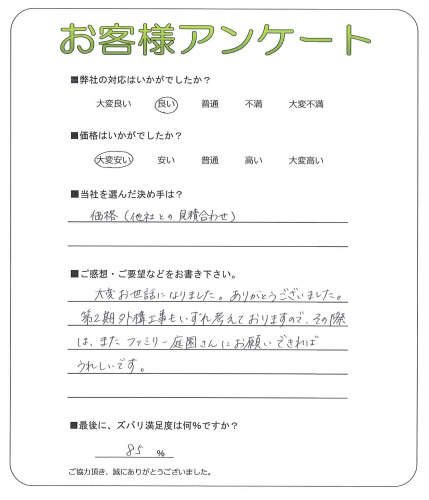 お客様アンケート
■弊社の対応はいかがでしたか？
大変良い 良い 普通 不満 大変不満
■価格はいかがでしたか？
大変安い 安い 普通 高い 大変高い
■当社を選んだ決め手は？
価格（他社との見積合わせ）
■ご感想・ご要望などをお書き下さい。
大変お世話になりました。ありがとうございました。
第2期外構工事もいずれ考えておりますので、その際
は、また ファミリー庭園さんにお願いできれば
うれしいです。
■最後に、ズバリ満足度は何%ですか？
85 %
ご協力頂き、誠にありがとうございました。